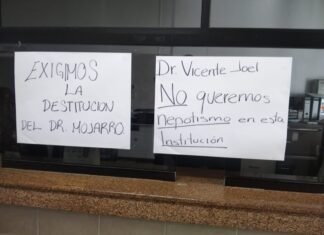 EXIGIMOS
LA
DESTITUCION
DEL DR. MOJARRO.
Dr. Vicente Joel
NO queremos
nepotismo en esta
Institución